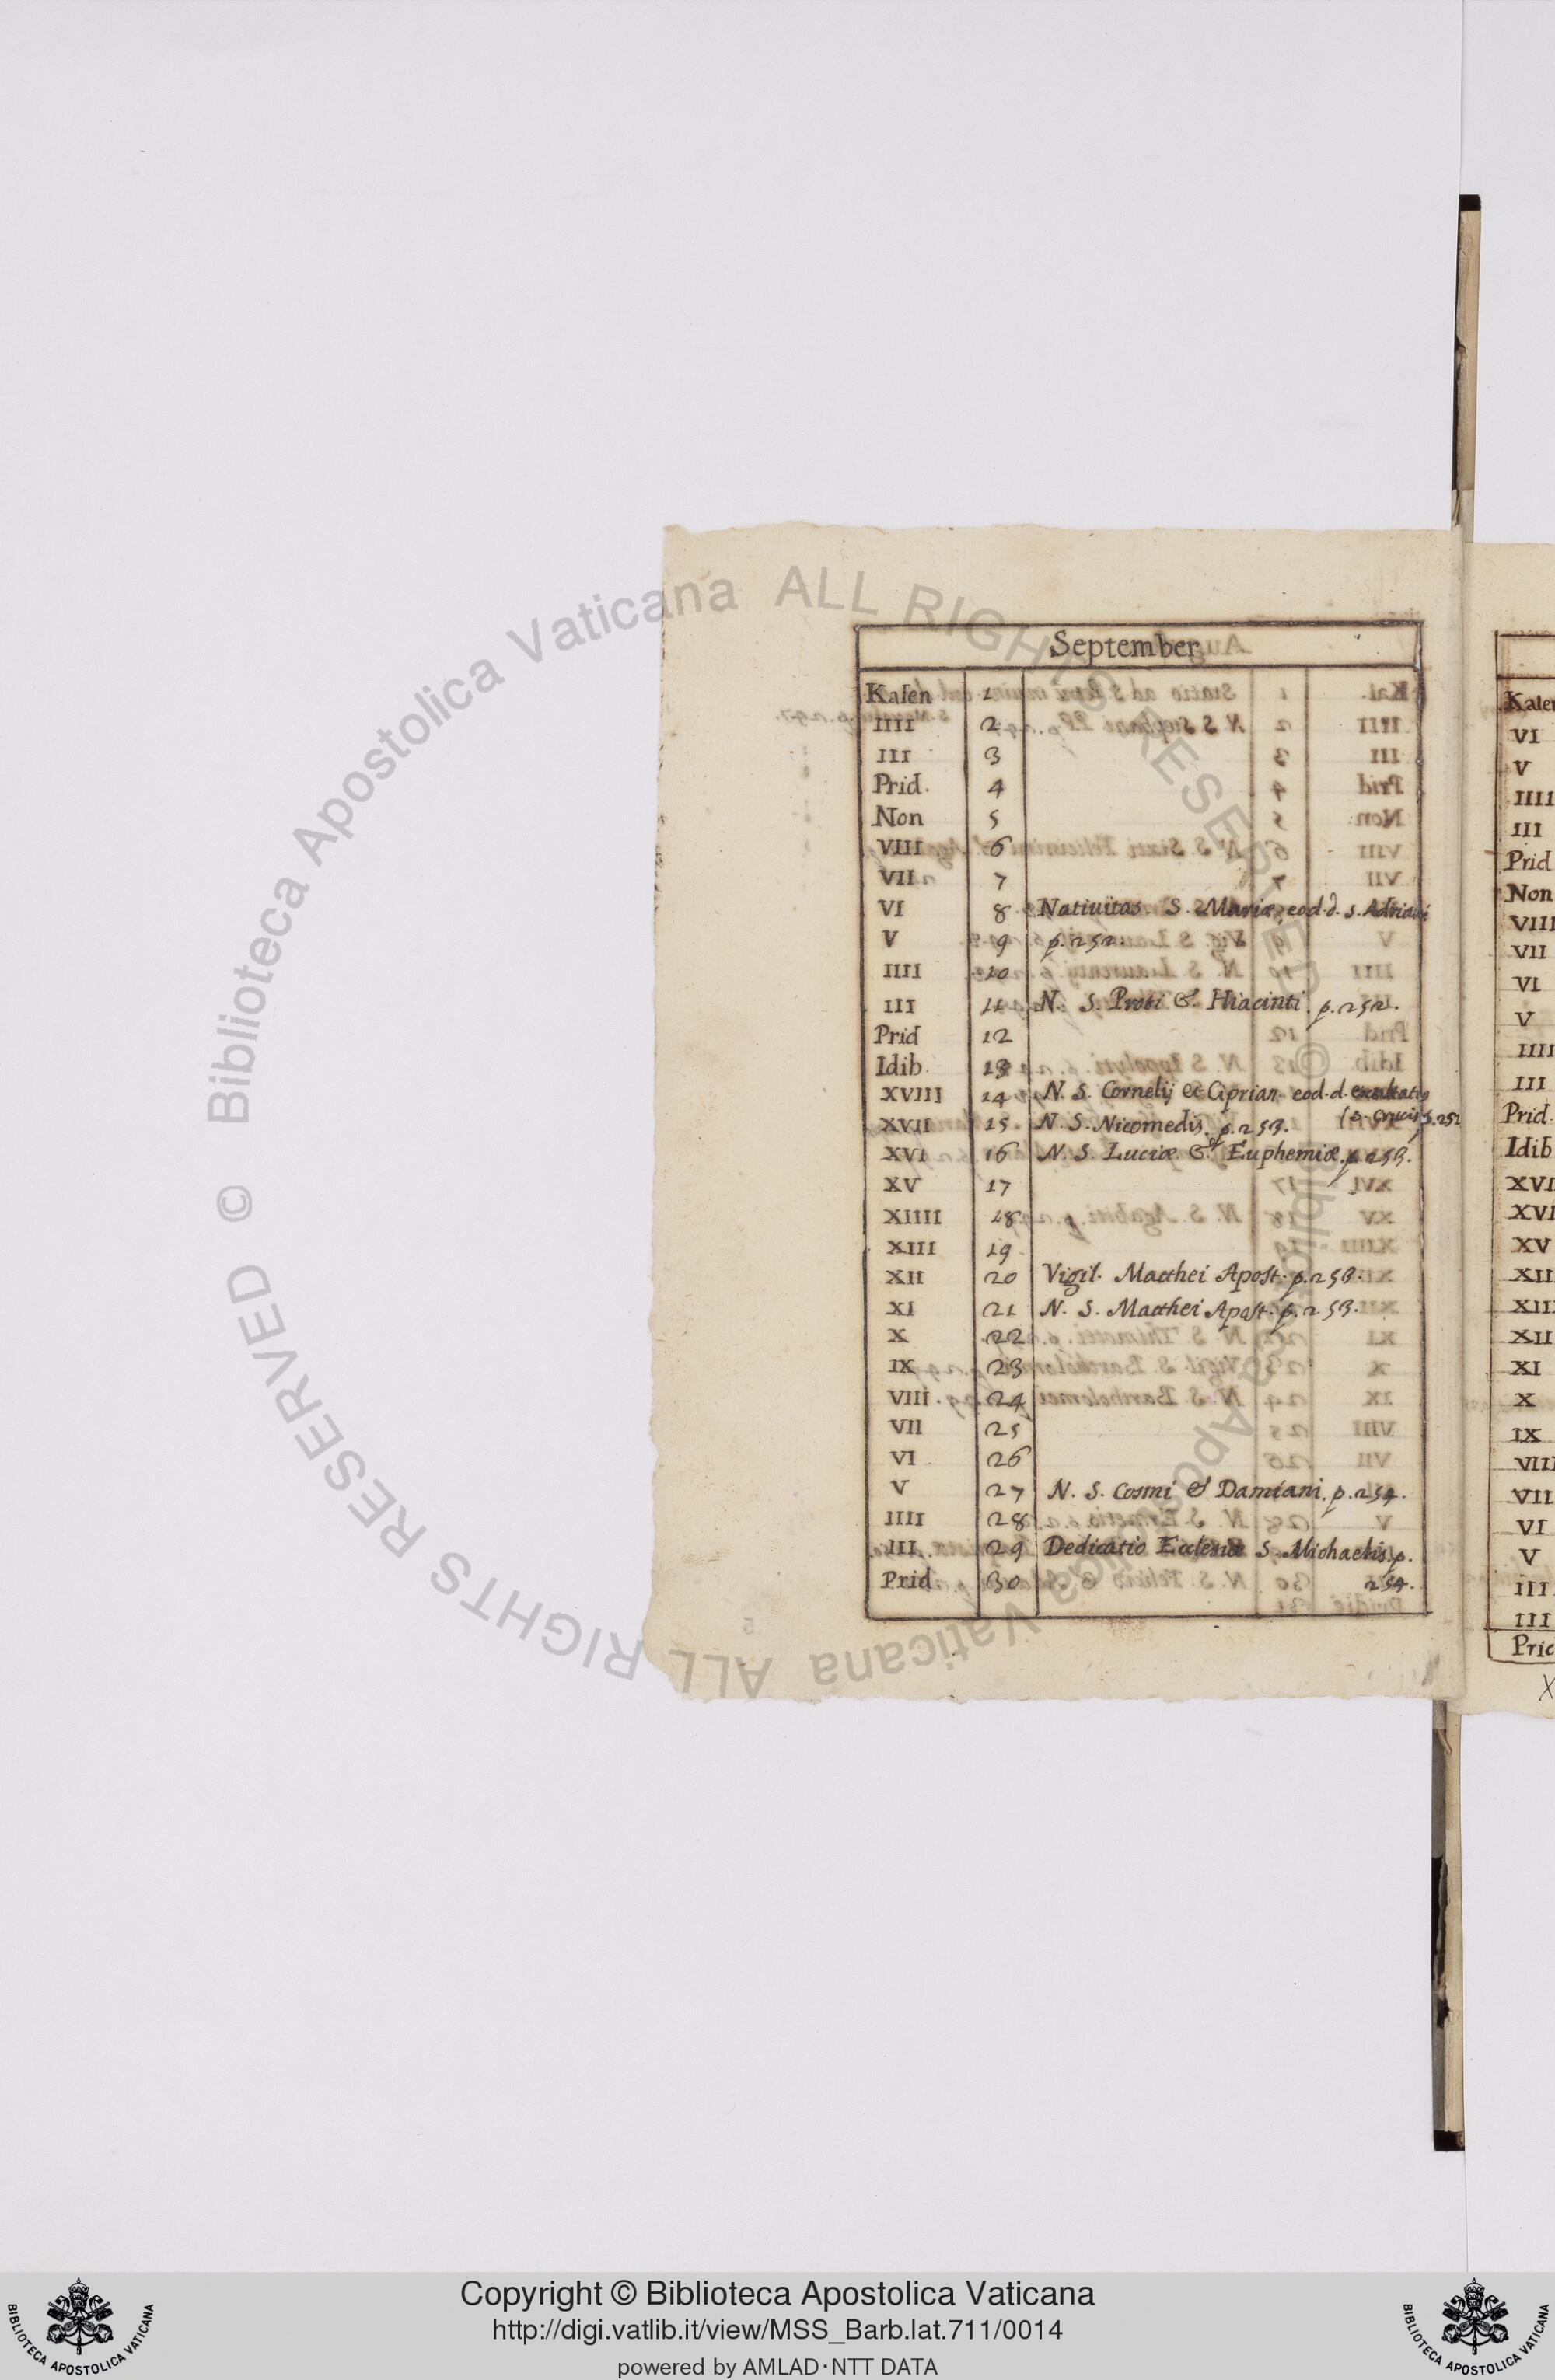 September
Kalen 1
IIII 2
III 3
Prid. 4
Non 5
VIII 6
VII 7
VI 8 Natiuitas S. Mariæ eod. d. S. Adriani
V 9 p. 252.
IIII 10
III 11 N. S. Proti & Hiacinti. p. 252.
Prid 12
Idib. 13
XVIII 14 N. S. Cornelij et Ciprian. eod. d. exaltatio
(S. Crucis p. 252
XVII 15 N. S. Nicomedis. p. 253.
XVI 16 N. S. Luciæ & Euphemiæ. p. 253.
XV 17
XIIII 18
XIII 19
XII 20 Vigil. Matthei Apost. p. 253.
XI 21 N. S. Matthei Apost. p. 253.
X 22
IX 23
VIII. 24
VII 25
VI 26
V 27 N. S. Cosmi & Damiani. p. 254.
IIII 28
III. 29 Dedicatio Ecclesiæ S. Michaelis. p.
Prid. 30 254.
Kalen
VI
V
IIII
III
Prid
Non
VIII
VII
VI
V
IIII
III
Prid.
Idib
XVI
XVI
XV
XII
XIII
XII
XI
X
IX
VIII
VII
VI
V
III
III
Prid
© Biblioteca Apostolica Vaticana ALL RIGHTS RESERVED © Biblioteca Apostolica Vaticana ALL RIGHTS RESERVED
Copyright © Biblioteca Apostolica Vaticana
http://digi.vatlib.it/view/MSS_Barb.lat.711/0014
powered by AMLAD·NTT DATA
BIBLIOTECA APOSTOLICA VATICANA
BIBLIOTECA APOSTOLICA VATICANA